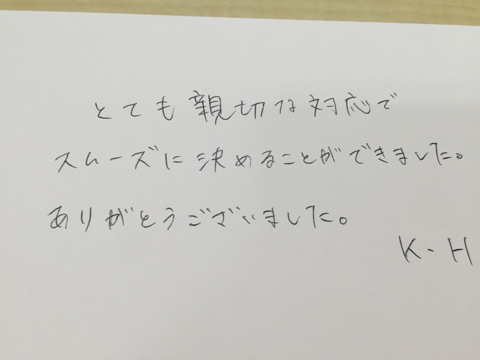 とても親切な対応で
スムーズに決めることができました。
ありがとうございました。
K-H